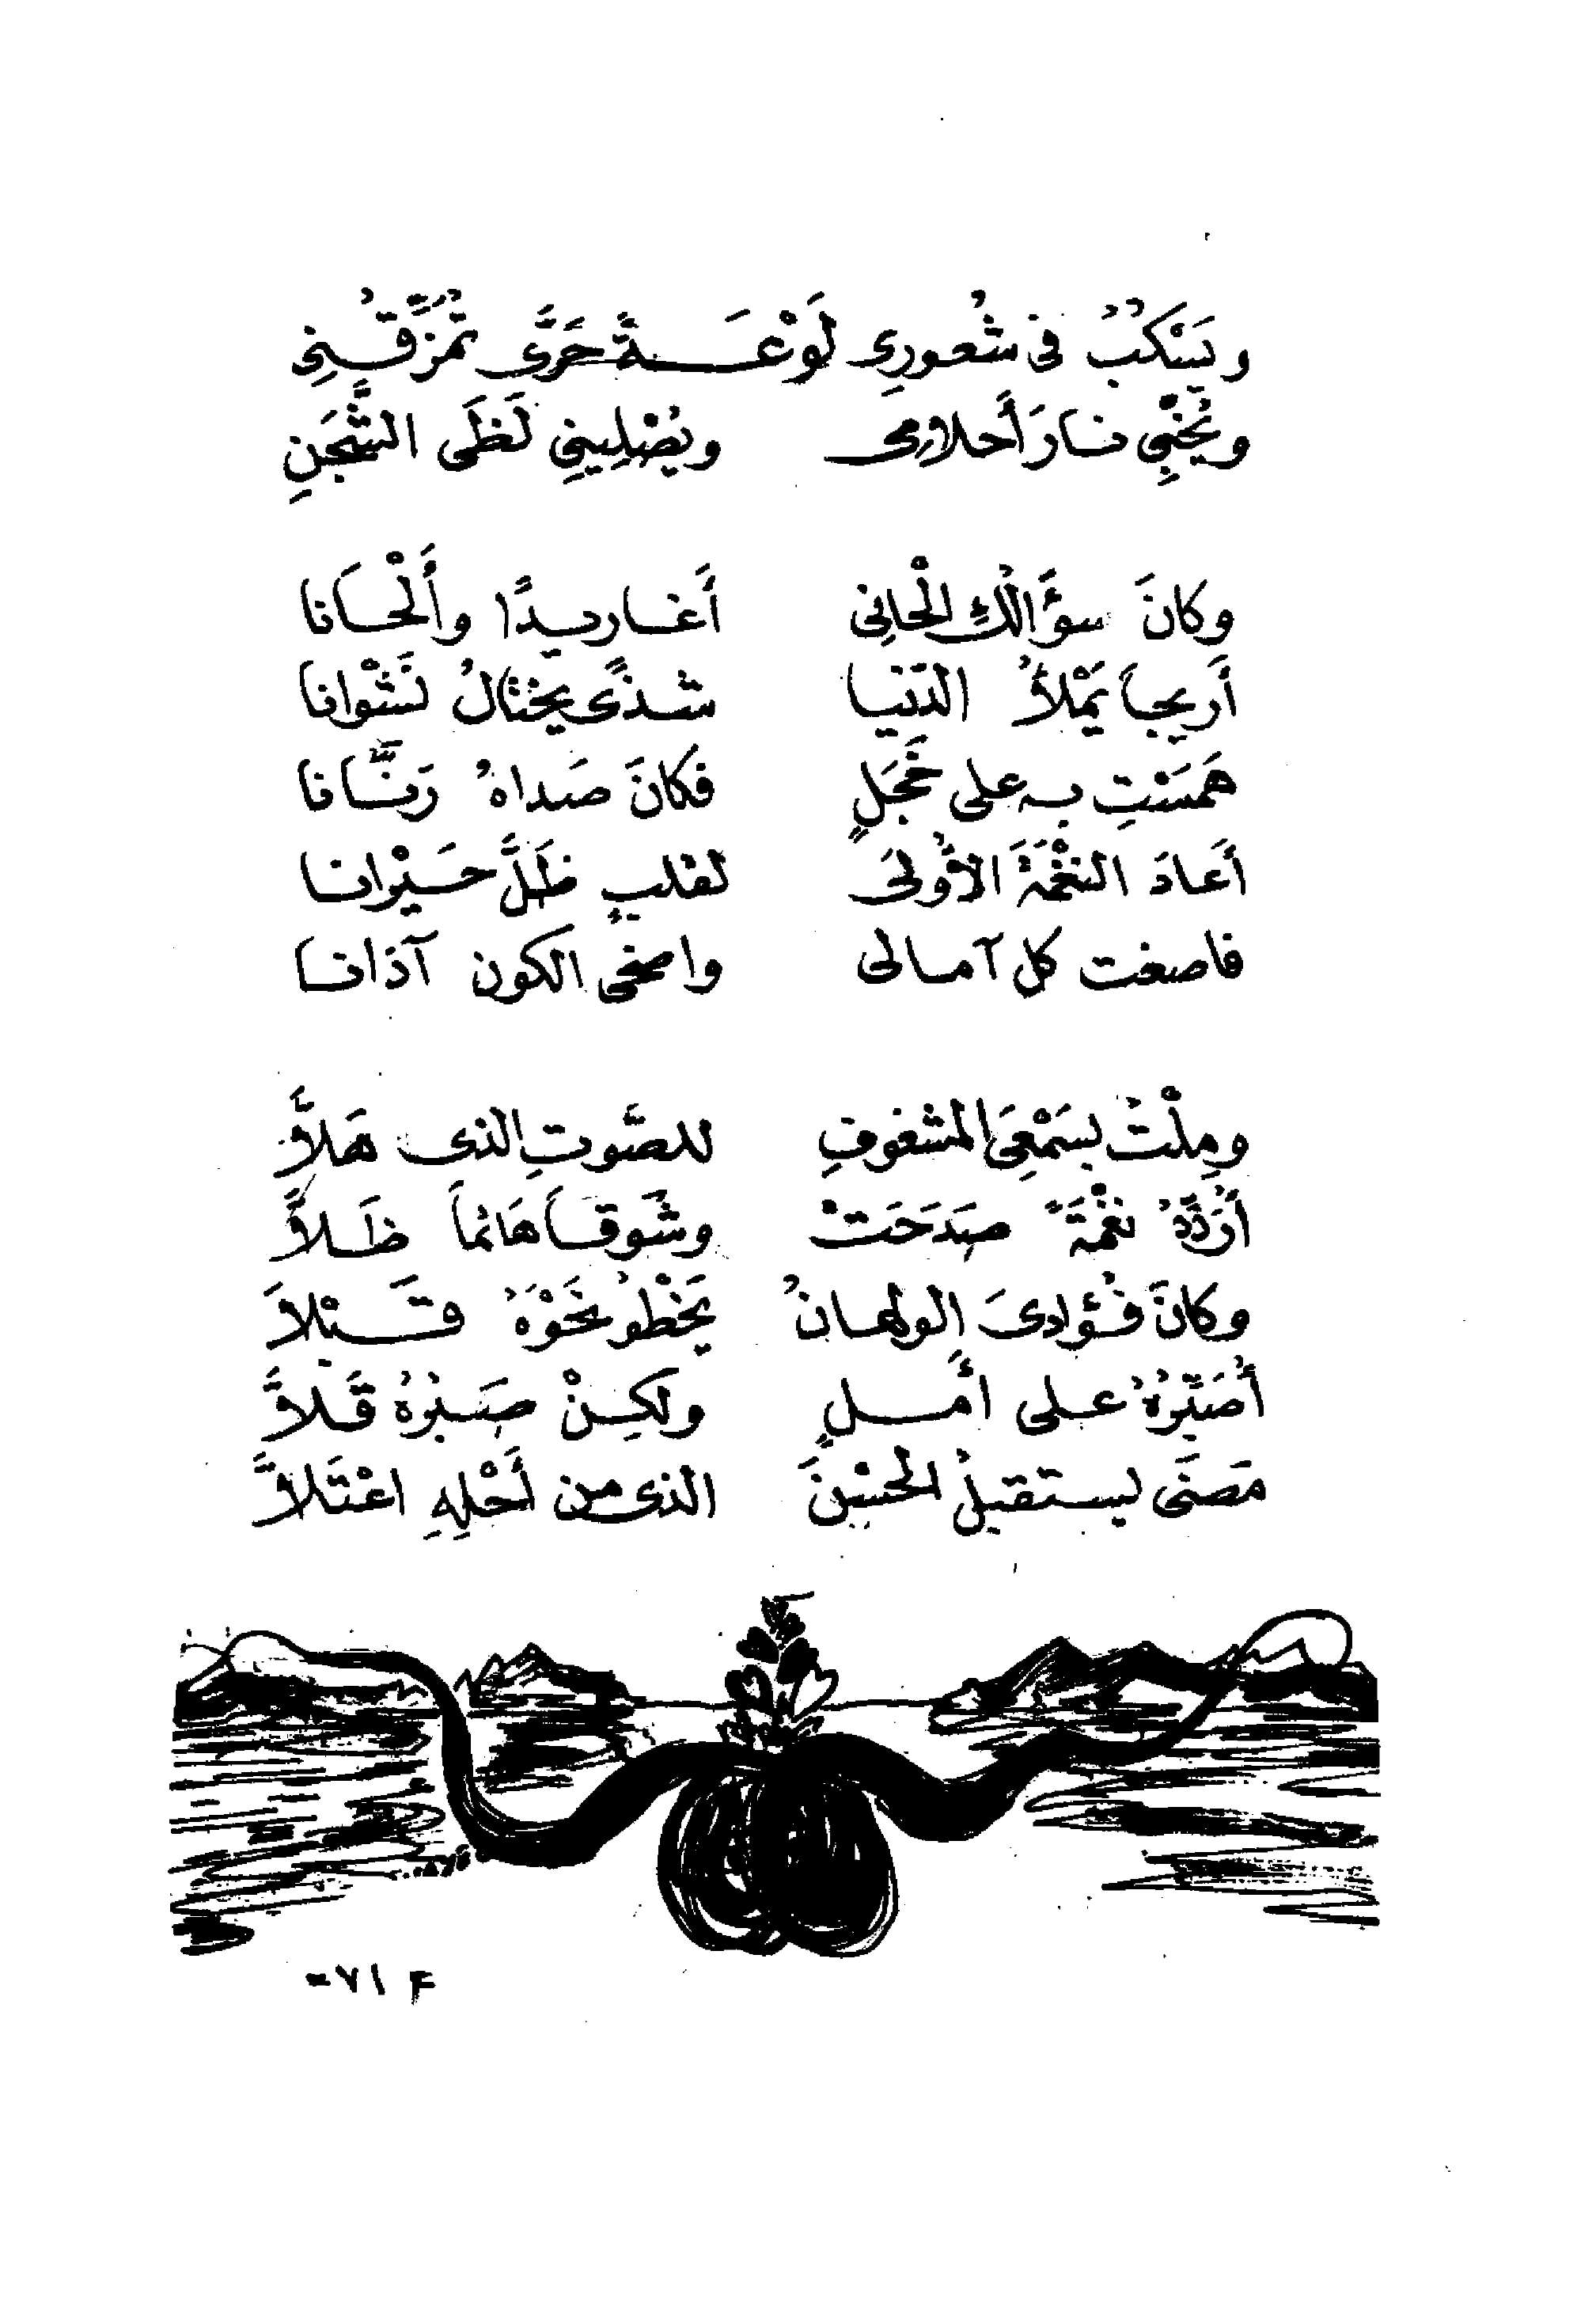 ويَسْكُبُ في شُعوري لَوْعَةً حَرَّى تُمَزِّقُنِي
ويُخَبِّي نارَ أَحلامي ويُصْلِيني لَظَى الشَّجَنِ
وكانَ سؤَالُكِ الْحاني أَغاريدًا وأَلْحَانا
أَريجاً يَمْلأُ الدنيا شذىً يختالُ نَشْوانا
هَمَسْتِ به على خَجَلٍ فكانَ صَداهُ رَنَّانا
أَعادَ النغْمَةَ الأُولَى لقلبٍ ظَلَّ حَيْرانا
فاصغت كل آمالى واضحى الكون آذانا
ومِلْتُ بسَمْعِيَ المشغوفِ للصَّوتِ الذى هَلاَّ
أُرَدِّدُ نغْمَةً صَدَحَتْ وشَوقاً هَائماً ظَلاَّ
وكانَ فُؤادىَ الولهانُ يَخْطُو نَحْوَهُ قَبْلاَ
أُصَبِّرُهُ على أَملٍ ولكِنْ صَبْرُهُ قَلاَّ
مَضَى ليستقبلُ الحسْنَ الذى من أَجْلِهِ اعْتَلاَّ
٧١ -